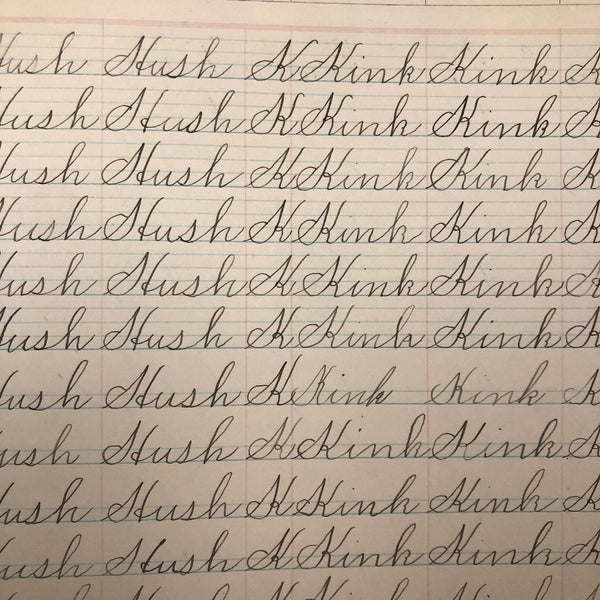 Hush Hush K Kink Kink K
Hush Hush K Kink Kink K
Hush Hush K Kink Kink K
Hush Hush K Kink Kink K
Hush Hush K Kink Kink K
Hush Hush K Kink Kink K
Hush Hush K Kink Kink K
Hush Hush K Kink Kink K
Hush Hush K Kink Kink K
Hush Hush K Kink Kink K